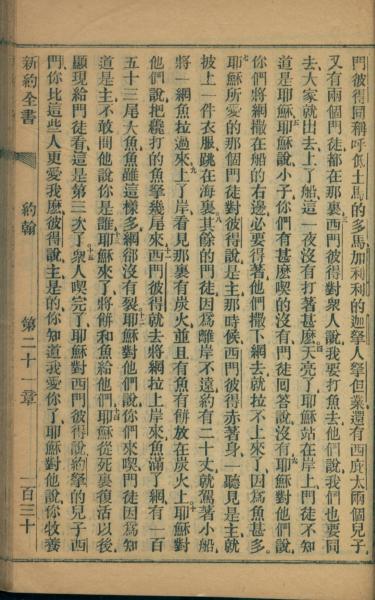 門彼得同稱呼低土馬的多馬加利利的迦拏人拏但業還有西庇太兩個兒子
又有兩個門徒都在那裏西門彼得對衆人說我要打魚去他們說我們也要同
去大家就出去上了船這一夜沒有打著甚麽天亮了耶穌站在岸上門徒不知
道是耶穌耶穌說小子你們有甚麽喫的沒有門徒回答說沒有耶穌對他們說
你們將網撒在船的右邊必要得著他們撒下網去就拉不上來了因爲魚甚多
耶穌所愛的那個門徒對彼得說是主那時候西門彼得赤著身一聽見是主就
披上一件衣服跳在海裏其餘的門徒因爲離岸不遠約有二十丈就駕著小船
將一網魚拉過來上了岸看見那裏有炭火並且有魚有餅放在炭火上耶穌對
他們說把纔打的魚拏幾尾來西門彼得就去將網拉上岸來魚滿了網有一百
五十三尾大魚魚雖這樣多網卻沒有裂耶穌對他們說你們來喫門徒因爲知
道是主不敢問他說你是誰耶穌來了將餅和魚給他們耶穌從死裏復活以後
顯現給門徒看這是第三次了衆人喫完了耶穌對西門彼得說約拏的兒子西
門你比這些人更愛我麽彼得說主是的你知道我愛你了耶穌對他說你牧養
新約全書 約翰 第二十一章 一百三十